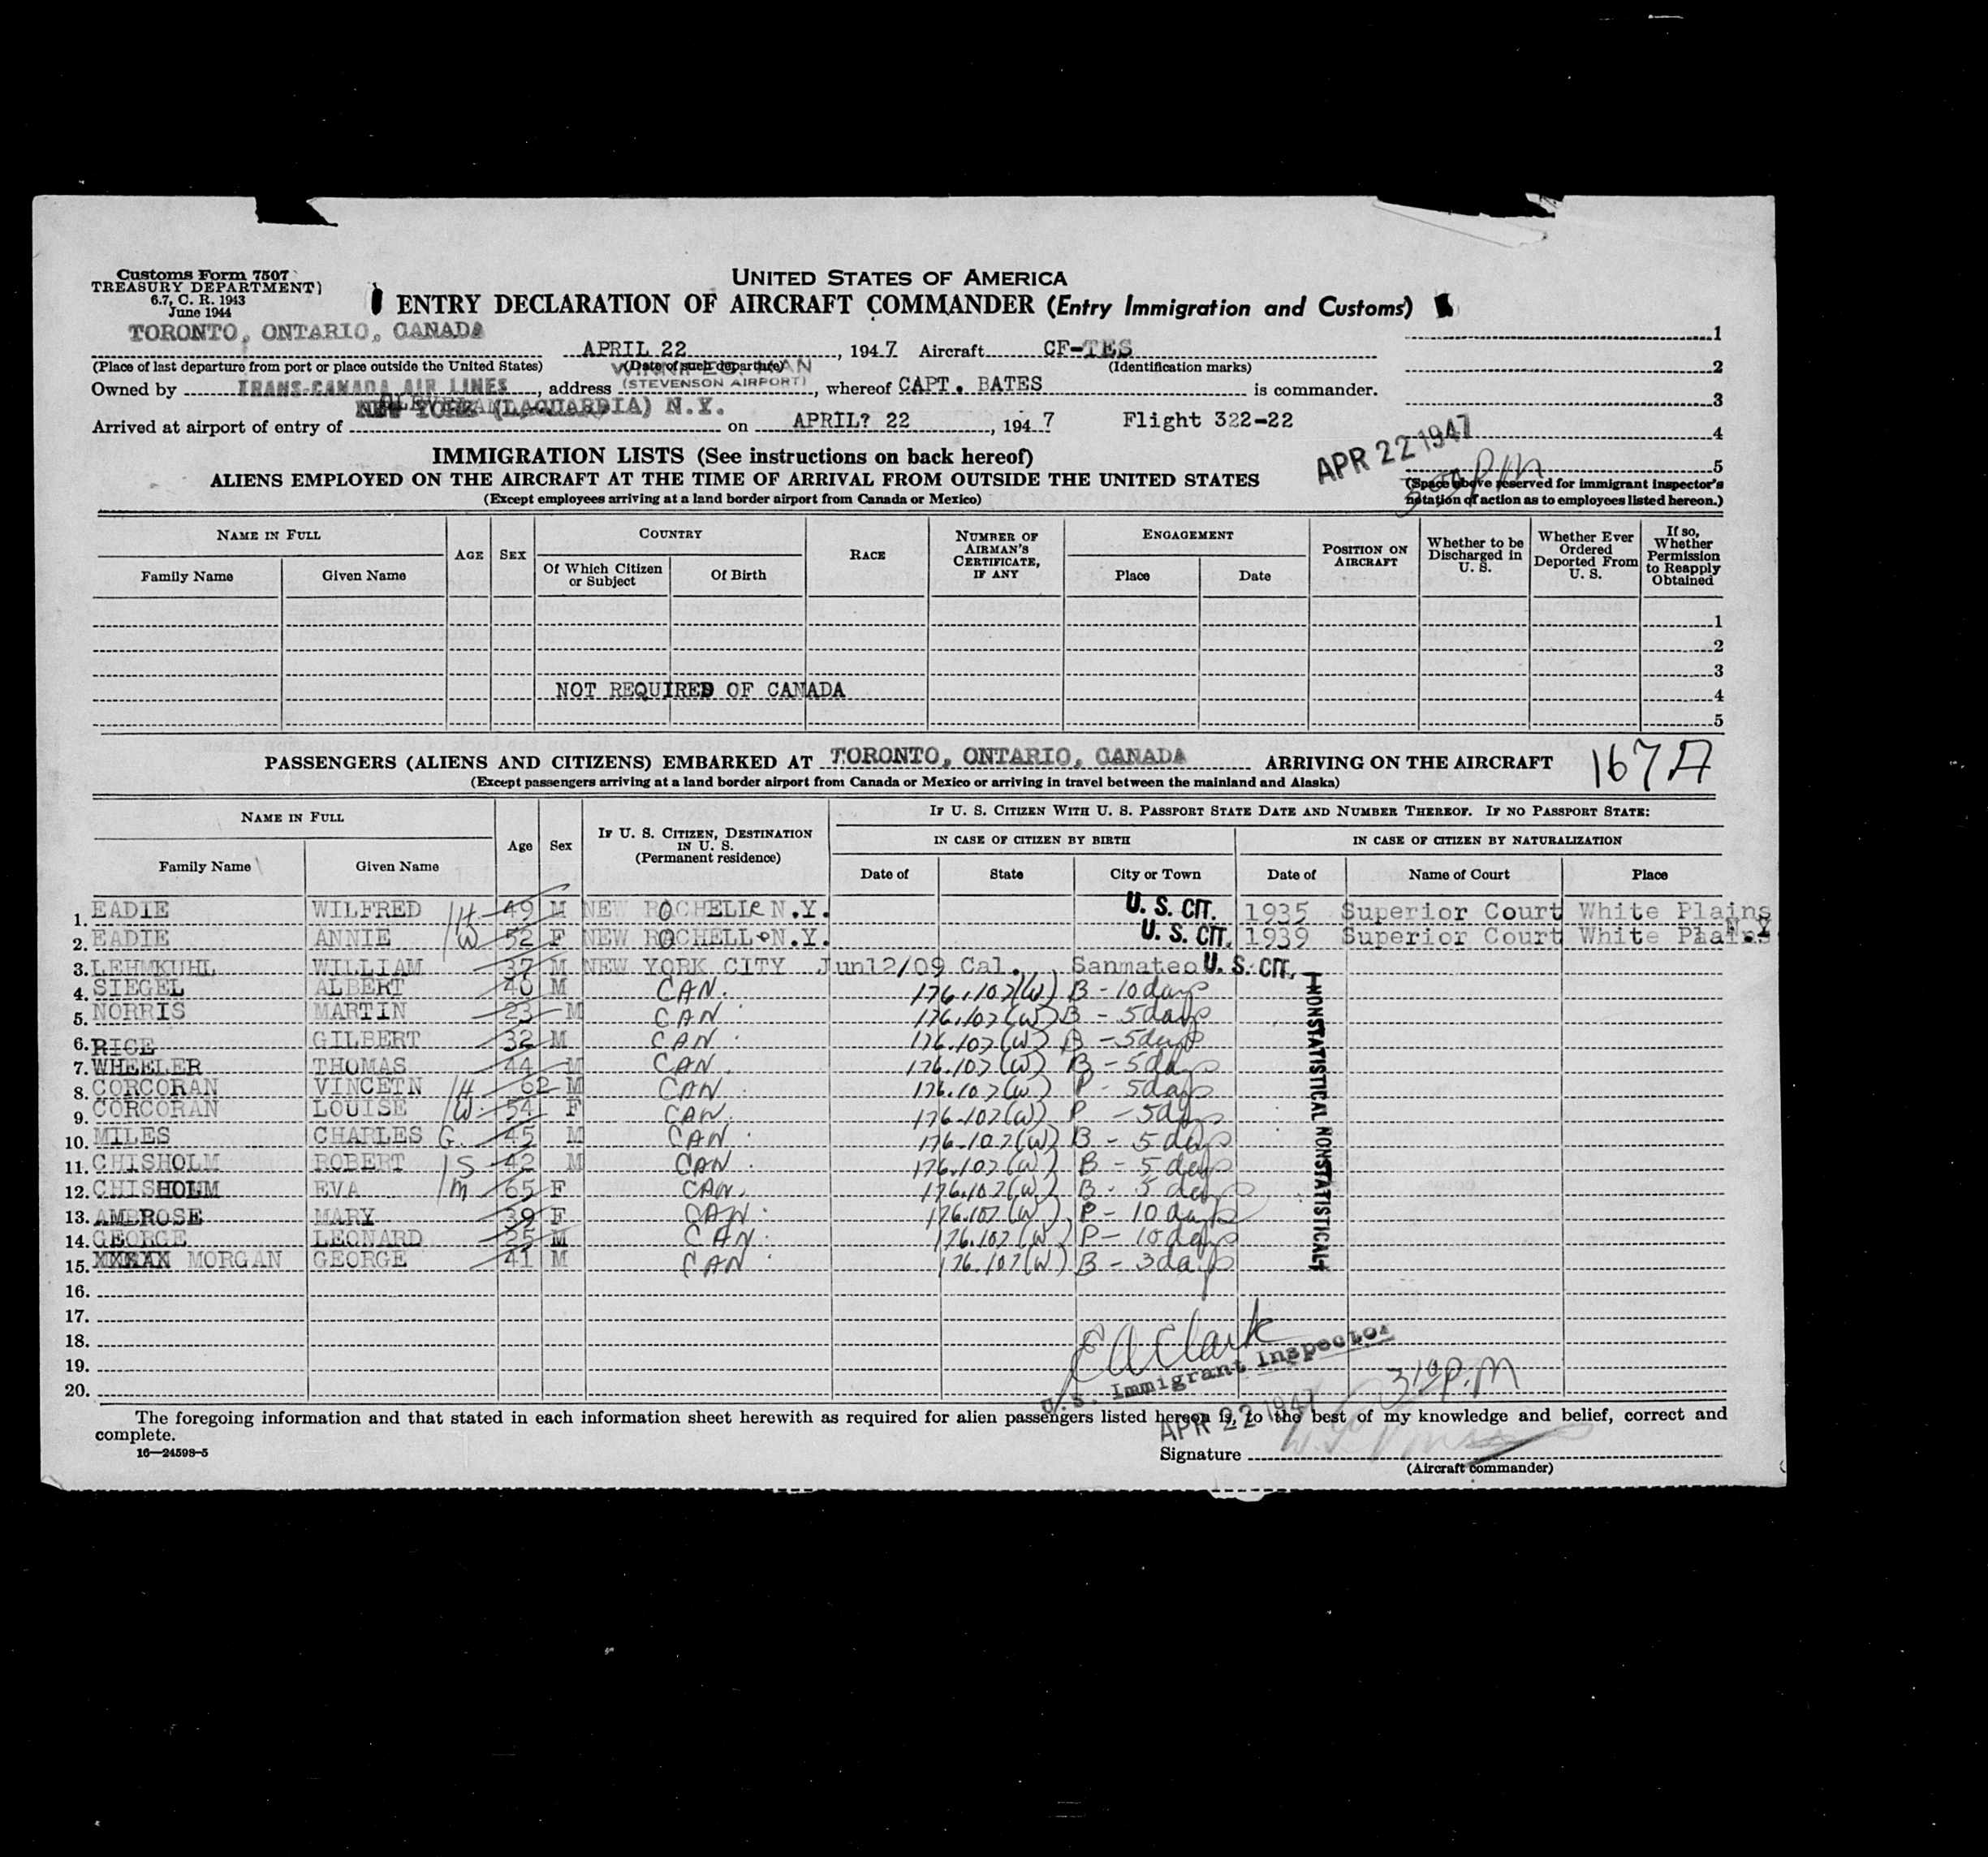 Customs Form 7507
TREASURY DEPARTMENT)
6.7, C. R. 1943
June 1944
UNITED STATES OF AMERICA
ENTRY DECLARATION OF AIRCRAFT COMMANDER (Entry Immigration and Customs)
TORONTO, ONTARIO, CANADA
APRIL 22, 1947 Aircraft CF-TES
1
(Place of last departure from port or place outside the United States) (Date of such departure) (Identification marks)
2
Owned by TRANS-CANADA AIR LINES, address (STEVENSON AIRPORT), whereof CAPT. BATES is commander.
3
NEW YORK (LAGUARDIA) N.Y.
Arrived at airport of entry of on APRIL? 22, 1947 Flight 322-22
4
APR 22 1947
5
IMMIGRATION LISTS (See instructions on back hereof)
ALIENS EMPLOYED ON THE AIRCRAFT AT THE TIME OF ARRIVAL FROM OUTSIDE THE UNITED STATES
(Except employees arriving at a land border airport from Canada or Mexico)
(Space above reserved for immigrant inspector's
notation of action as to employees listed hereon.)
NAME IN FULL
Family Name Given Name
AGE SEX
COUNTRY
Of Which Citizen or Subject Of Birth
RACE
NUMBER OF AIRMAN'S CERTIFICATE, IF ANY
ENGAGEMENT
Place Date
POSITION ON AIRCRAFT
Whether to be Discharged in U. S.
Whether Ever Ordered Deported From U. S.
If so, Whether Permission to Reapply Obtained
1
2
3
NOT REQUIRED OF CANADA 4
5
PASSENGERS (ALIENS AND CITIZENS) EMBARKED AT TORONTO, ONTARIO, CANADA ARRIVING ON THE AIRCRAFT 167A
(Except passengers arriving at a land border airport from Canada or Mexico or arriving in travel between the mainland and Alaska)
NAME IN FULL
Family Name Given Name
Age Sex
IF U. S. CITIZEN, DESTINATION IN U. S. (Permanent residence)
IF U. S. CITIZEN WITH U. S. PASSPORT STATE DATE AND NUMBER THEREOF. IF NO PASSPORT STATE:
IN CASE OF CITIZEN BY BIRTH IN CASE OF CITIZEN BY NATURALIZATION
Date of State City or Town Date of Name of Court Place
1. EADIE WILFRED H 49 M NEW ROCHELLE N.Y. U. S. CIT. 1935 Superior Court White Plains
2. EADIE ANNIE W 52 F NEW ROCHELLe N.Y. U. S. CIT. 1939 Superior Court White Plains N.Y
3. LEHMKUHL WILLIAM 37 M NEW YORK CITY Jun12/09 Cal. Sanmateo U. S. CIT.
4. SIEGEL ALBERT 40 M CAN. 176.107(W) B - 10 days
5. NORRIS MARTIN 23 M CAN 176.107(W) B - 5 days
6. RICE GILBERT 32 M CAN. 176.107(W) B - 5 days
7. WHEELER THOMAS 44 M CAN. 176.107(W) B - 5 days
8. CORCORAN VINCETN H 62 M CAN. 176.107(W) P - 5 days
9. CORCORAN LOUISE W 54 F CAN. 176.107(W) P - 5 days
10. MILES CHARLES G. 45 M CAN. 176.107(W) B - 5 days
11. CHISHOLM ROBERT S 42 M CAN. 176.107(W) B - 5 days
12. CHISHOLM EVA m 65 F CAN. 176.107(W) B - 5 days
13. AMBROSE MARY 39 F CAN. 176.107(W) P - 10 days
14. GEORGE LEONARD 25 M CAN. 176.107(W) P - 10 days
15. MORGAN GEORGE 41 M CAN 176.107(W) B - 3 days
NONSTATISTICAL NONSTATISTICAL
16.
17.
18.
19.
20.
E A Clark
U.S. Immigrant Inspector
310 P.M
APR 22 1947
The foregoing information and that stated in each information sheet herewith as required for alien passengers listed hereon is, to the best of my knowledge and belief, correct and
complete.
16—24598-5
Signature
(Aircraft commander)